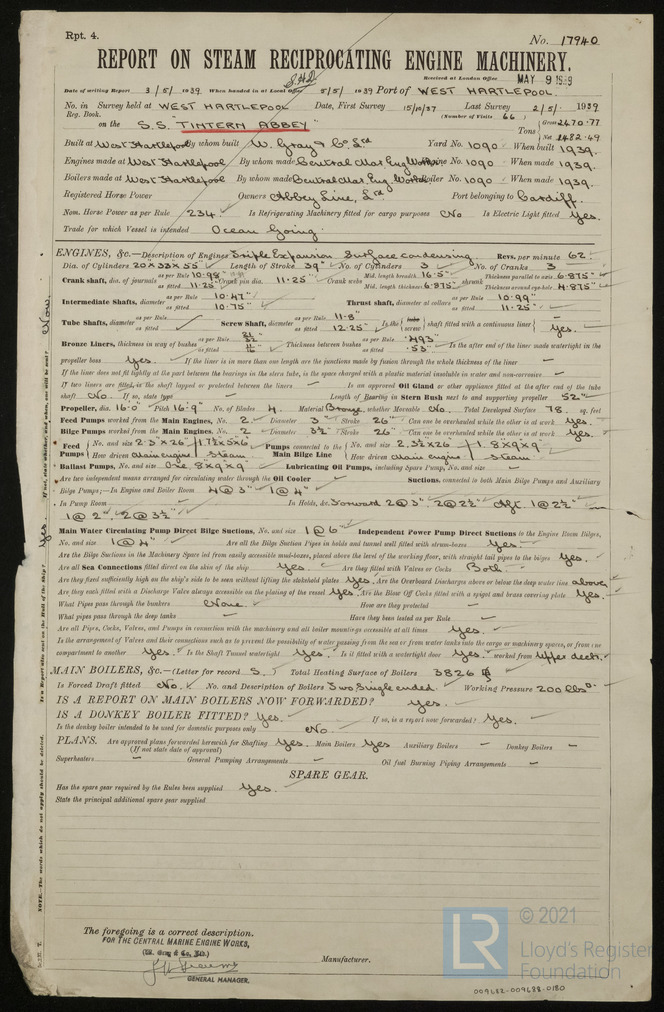 Rpt. 4.
No. 17940
REPORT ON STEAM RECIPROCATING ENGINE MACHINERY.
Received at London Office MAY 9 1939
Date of writing Report 3/5/1939 When handed in at Local Office 5/5/1939 Port of WEST HARTLEPOOL.
No. in Reg. Book. Survey held at WEST HARTLEPOOL Date, First Survey 15/10/37 Last Survey 2/5/1939
(Number of Visits 66)
on the S.S. "TINTERN ABBEY" Tons Gross 2470.77 Net 1482.49
Built at West Hartlepool By whom built W. Gray & Co. Ltd Yard No. 1090 When built 1939.
Engines made at West Hartlepool By whom made Central Mar. Eng. Works Engine No. 1090 When made 1939.
Boilers made at West Hartlepool By whom made Central Mar. Eng. Works Boiler No. 1090 When made 1939.
Registered Horse Power Owners Abbey Line, Ltd Port belonging to Cardiff.
Nom. Horse Power as per Rule 234. Is Refrigerating Machinery fitted for cargo purposes No Is Electric Light fitted Yes.
Trade for which Vessel is intended Ocean Going.
ENGINES, &c.—Description of Engines Triple Expansion Surface condensing. Revs. per minute 62.
Dia. of Cylinders 20" x 33" x 55" Length of Stroke 39" No. of Cylinders 3 No. of Cranks 3
Crank shaft, dia. of journals as per Rule 10.98" as fitted 11.25" Crank pin dia. 11.25" Crank webs Mid. length breadth 16.5" Mid. length thickness 6.875" shrunk Thickness parallel to axis 6.875" Thickness around eye-hole 4.875"
Intermediate Shafts, diameter as per Rule 10.47" as fitted 10.75" Thrust shaft, diameter at collars as per Rule 10.99" as fitted 11.25"
Tube Shafts, diameter as per Rule — as fitted — Screw Shaft, diameter as per Rule 11.8" as fitted 12.25" Is the {tube screw} shaft fitted with a continuous liner Yes.
Bronze Liners, thickness in way of bushes as per Rule 21/32" as fitted 11/16" Thickness between bushes as per Rule .493 as fitted .53" Is the after end of the liner made watertight in the
propeller boss Yes. If the liner is in more than one length are the junctions made by fusion through the whole thickness of the liner —
If the liner does not fit tightly at the part between the bearings in the stern tube, is the space charged with a plastic material insoluble in water and non-corrosive —
If two liners are fitted, is the shaft lapped or protected between the liners — Is an approved Oil Gland or other appliance fitted at the after end of the tube
shaft No. If so, state type — Length of Bearing in Stern Bush next to and supporting propeller 52"
Propeller, dia. 16'0" Pitch 16'9" No. of Blades 4. Material Bronze. whether Moveable No. Total Developed Surface 78. sq. feet
Feed Pumps worked from the Main Engines, No. 2. Diameter 3" Stroke 26" Can one be overhauled while the other is at work Yes.
Bilge Pumps worked from the Main Engines, No. 2 Diameter 3½" Stroke 26" Can one be overhauled while the other is at work Yes.
Feed Pumps No. and size 2.3" x 26" / 1.7½ x 5 x 6" Pumps connected to the Main Bilge Line No. and size 2.3½ x 26 / 1.8 x 9 x 9"
How driven Main engine / Steam. How driven Main engine / Steam.
Ballast Pumps, No. and size One 8" x 9" x 9" Lubricating Oil Pumps, including Spare Pump, No. and size —
Are two independent means arranged for circulating water through the Oil Cooler — Suctions, connected to both Main Bilge Pumps and Auxiliary
Bilge Pumps;—In Engine and Boiler Room 4 @ 3" 1 @ 4"
In Pump Room — In Holds, &c. Forward 2 @ 3", 2 @ 2½" Aft 1 @ 2½"
1 @ 2", 2 @ 3½"
Main Water Circulating Pump Direct Bilge Suctions, No. and size 1 @ 6" Independent Power Pump Direct Suctions to the Engine Room Bilges,
No. and size 1 @ 4" Are all the Bilge Suction Pipes in holds and tunnel well fitted with strum-boxes Yes.
Are the Bilge Suctions in the Machinery Space led from easily accessible mud-boxes, placed above the level of the working floor, with straight tail pipes to the bilges Yes.
Are all Sea Connections fitted direct on the skin of the ship Yes. Are they fitted with Valves or Cocks Both
Are they fixed sufficiently high on the ship's side to be seen without lifting the stokehold plates Yes. Are the Overboard Discharges above or below the deep water line above
Are they each fitted with a Discharge Valve always accessible on the plating of the vessel Yes. Are the Blow Off Cocks fitted with a spigot and brass covering plate Yes.
What Pipes pass through the bunkers None. How are they protected —
What pipes pass through the deep tanks — Have they been tested as per Rule —
Are all Pipes, Cocks, Valves, and Pumps in connection with the machinery and all boiler mountings accessible at all times Yes.
Is the arrangement of Valves and their connections such as to prevent the possibility of water passing from the sea or from water tanks into the cargo or machinery spaces, or from one
compartment to another Yes. Is the Shaft Tunnel watertight Yes. Is it fitted with a watertight door Yes. worked from Upper deck.
MAIN BOILERS, &c.—(Letter for record S.) Total Heating Surface of Boilers 3826
Is Forced Draft fitted No. No. and Description of Boilers Two Single ended. Working Pressure 200 lbs
IS A REPORT ON MAIN BOILERS NOW FORWARDED? Yes.
IS A DONKEY BOILER FITTED? Yes. If so, is a report now forwarded? Yes.
Is the donkey boiler intended to be used for domestic purposes only No.
PLANS. Are approved plans forwarded herewith for Shafting Yes. Main Boilers Yes Auxiliary Boilers — Donkey Boilers —
(If not state date of approval)
Superheaters — General Pumping Arrangements — Oil fuel Burning Piping Arrangements —
SPARE GEAR.
Has the spare gear required by the Rules been supplied Yes.
State the principal additional spare gear supplied
The foregoing is a correct description.
FOR THE CENTRAL MARINE ENGINE WORKS,
(W. Gray & Co. Ltd.)
Manufacturer.
GENERAL MANAGER.
NOTE.—The words which do not apply should be deleted.
LR © 2021
Lloyd's Register
Foundation
009682-009688-0180